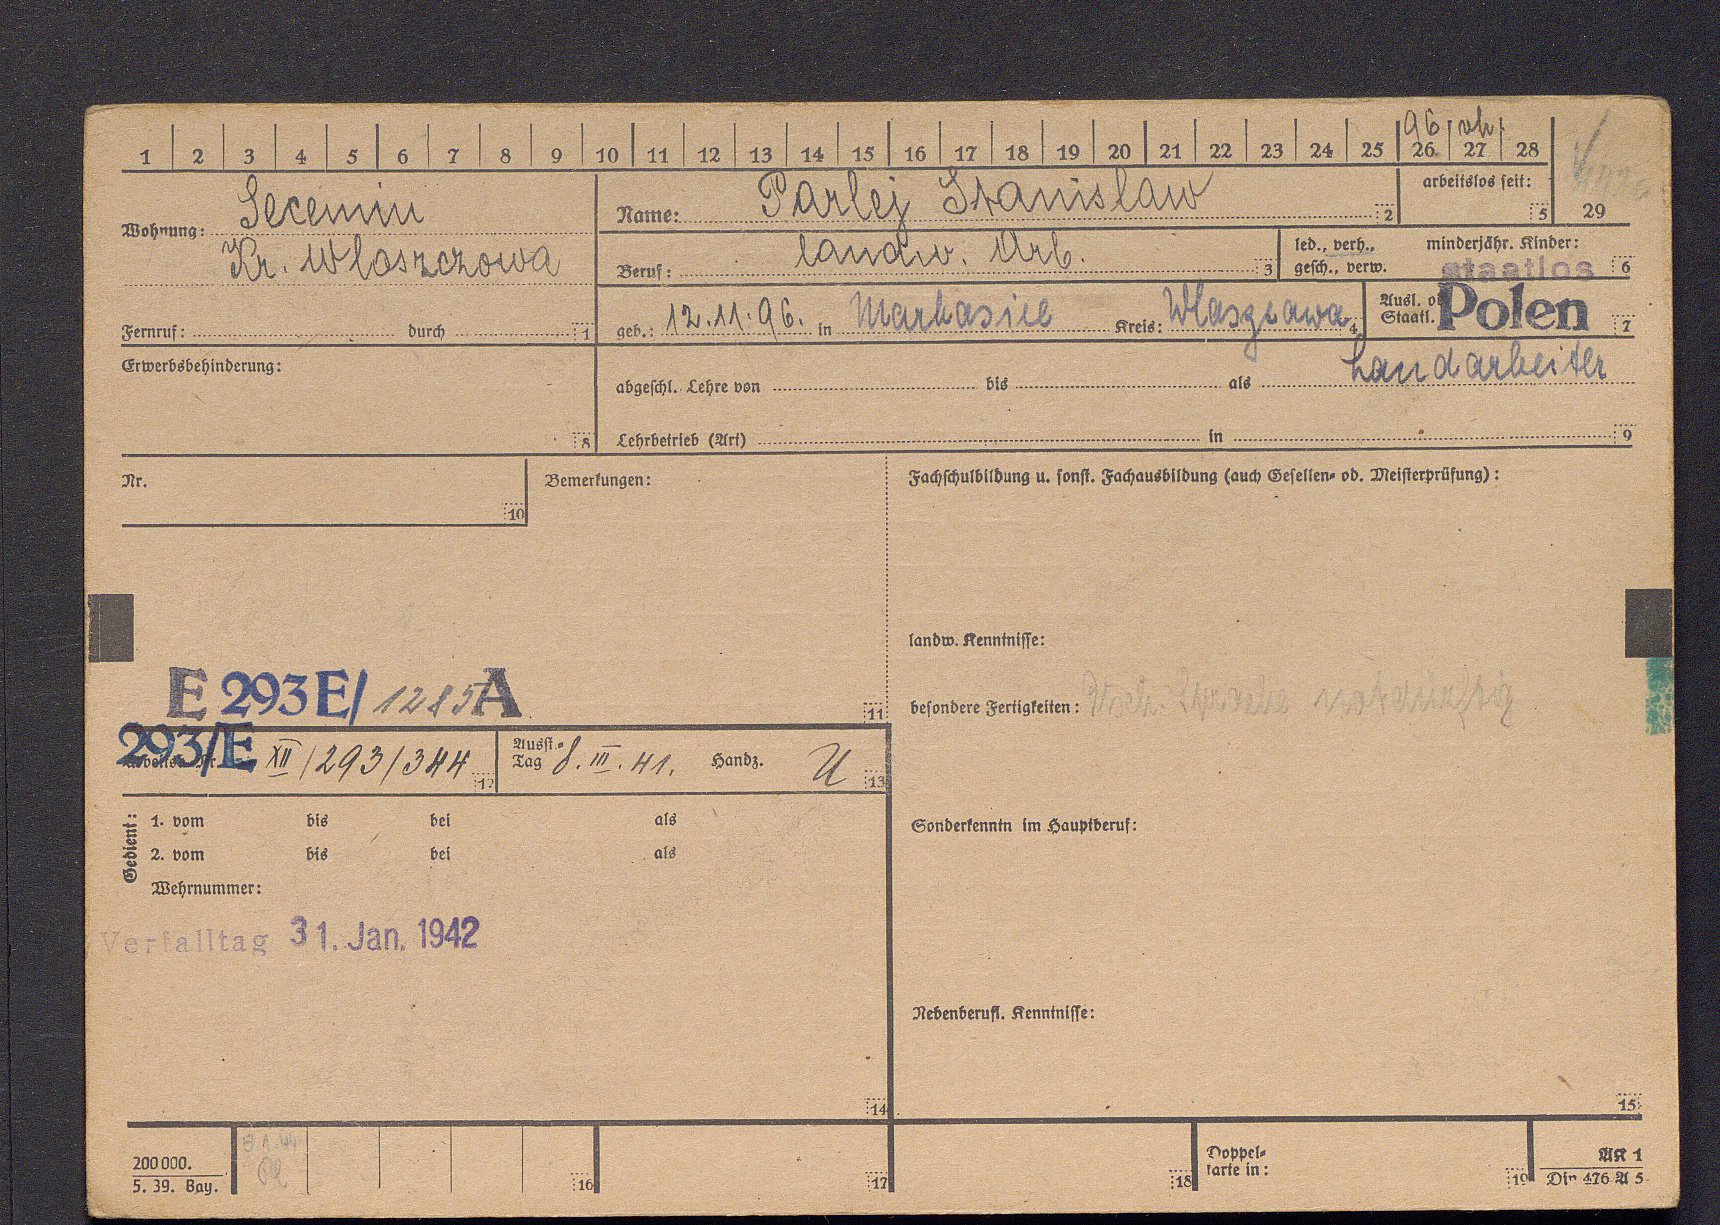 96 vh.
1 2 3 4 5 6 7 8 9 10 11 12 13 14 15 16 17 18 19 20 21 22 23 24 25 26 27 28
29
Wohnung: Secemin
Kr. Wloszczowa
Fernruf: durch 1
Name: Parlej Stanislaw 2
arbeitslos seit: 5
Beruf: landw. Arb. 3
led., verh., minderjähr. Kinder:
gesch., verw. 6
staatlos
geb.: 12.11.96. in Kreis: 4
Ausl. od.
Staatl. Polen 7
Erwerbsbehinderung: 8
abgeschl. Lehre von bis als Landarbeiter
Lehrbetrieb (Art) in 9
Nr. 10
Bemerkungen:
Fachschulbildung u. sonst. Fachausbildung (auch Gesellen- od. Meisterprüfung):
landw. Kenntnisse:
E 293 E/ 1285 A
11
besondere Fertigkeiten:
293/E XII/293/344 12
Ausst.-
Tag 8. III. 41. Handz. U 13
Gedient:
1. vom bis bei als
2. vom bis bei als
Wehrnummer:
Sonderkenntn im Hauptberuf:
Verfalltag 31. Jan. 1942
Nebenberufl. Kenntnisse:
14
15
200 000.
5. 39. Bay.
16
17
18
Doppel-
karte in: 19
AK 1
Din 476 A 5